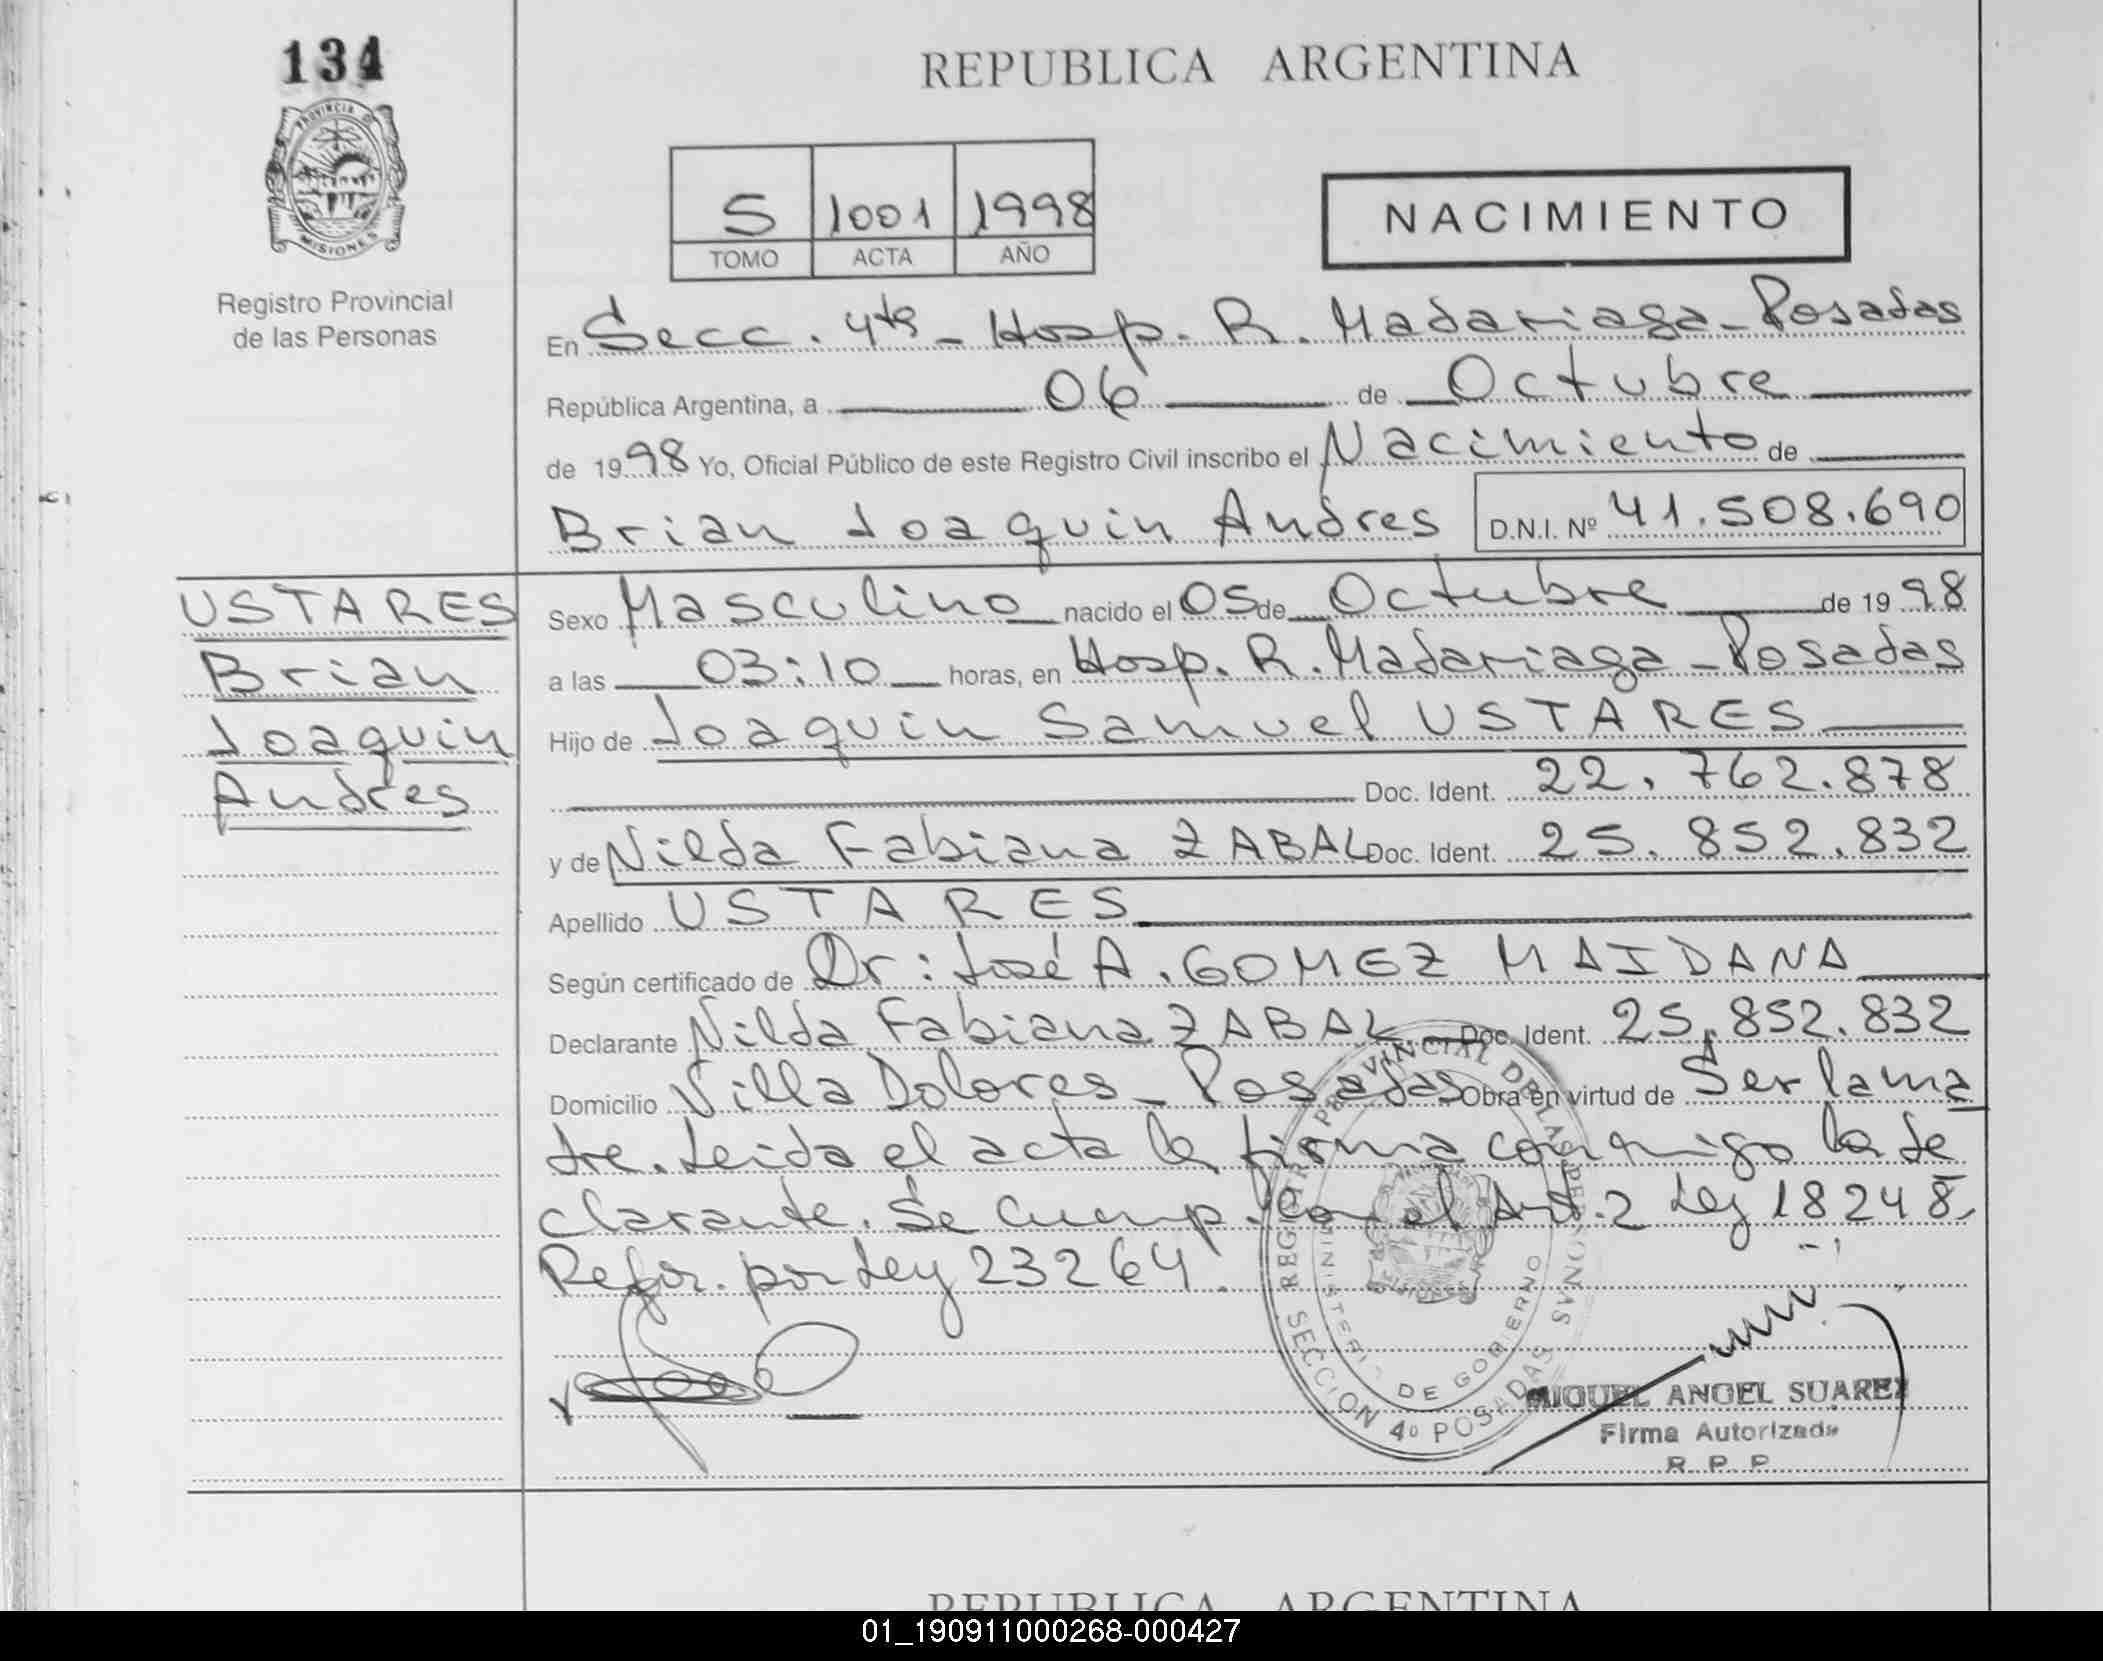 134
REPUBLICA ARGENTINA
PROVINCIA DE
MISIONES
5 1001 1998
TOMO ACTA AÑO
NACIMIENTO
Registro Provincial
de las Personas
En Secc. 4ta - Hosp. R. Madariaga - Posadas
República Argentina, a 06 de Octubre
de 1998 Yo, Oficial Público de este Registro Civil inscribo el Nacimiento de
Brian Joaquin Andres D.N.I. Nº 41.508.690
USTARES
Brian
Joaquin
Andres
Sexo Masculino nacido el 05 de Octubre de 1998
a las 03:10 horas, en Hosp. R. Madariaga - Posadas
Hijo de Joaquin Samuel USTARES
Doc. Ident. 22.762.878
y de Nilda Fabiana ZABAL Doc. Ident. 25.852.832
Apellido USTARES
Según certificado de Dr: José A. GOMEZ MAIDANA
Declarante Nilda Fabiana ZABAL Doc. Ident. 25.852.832
Domicilio Villa Dolores - Posadas Obra en virtud de Ser la ma
dre. Leida el acta la firma conmigo la de
clarante. Se Cump. con el Art. 2 Ley 18248,
Refor. por Ley 23264.
REGISTRO PROVINCIAL DE LAS PERSONAS
MINISTERIO DE GOBIERNO
SECCION 4º POSADAS
MIGUEL ANGEL SUAREZ
Firma Autorizada
R. P. P.
REPUBLICA ARGENTINA
01_190911000268-000427